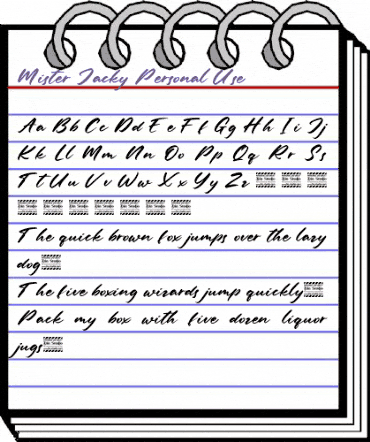 Mister Jacky Personal Use
Aa Bb Cc Dd Ee Ff Gg Hh Ii Jj
Kk Ll Mm Nn Oo Pp Qq Rr Ss
Tt Uu Vv Ww Xx Yy Zz
The quick brown fox jumps over the lazy
dog
The five boxing wizards jump quickly
Pack my box with five dozen liquor
jugs